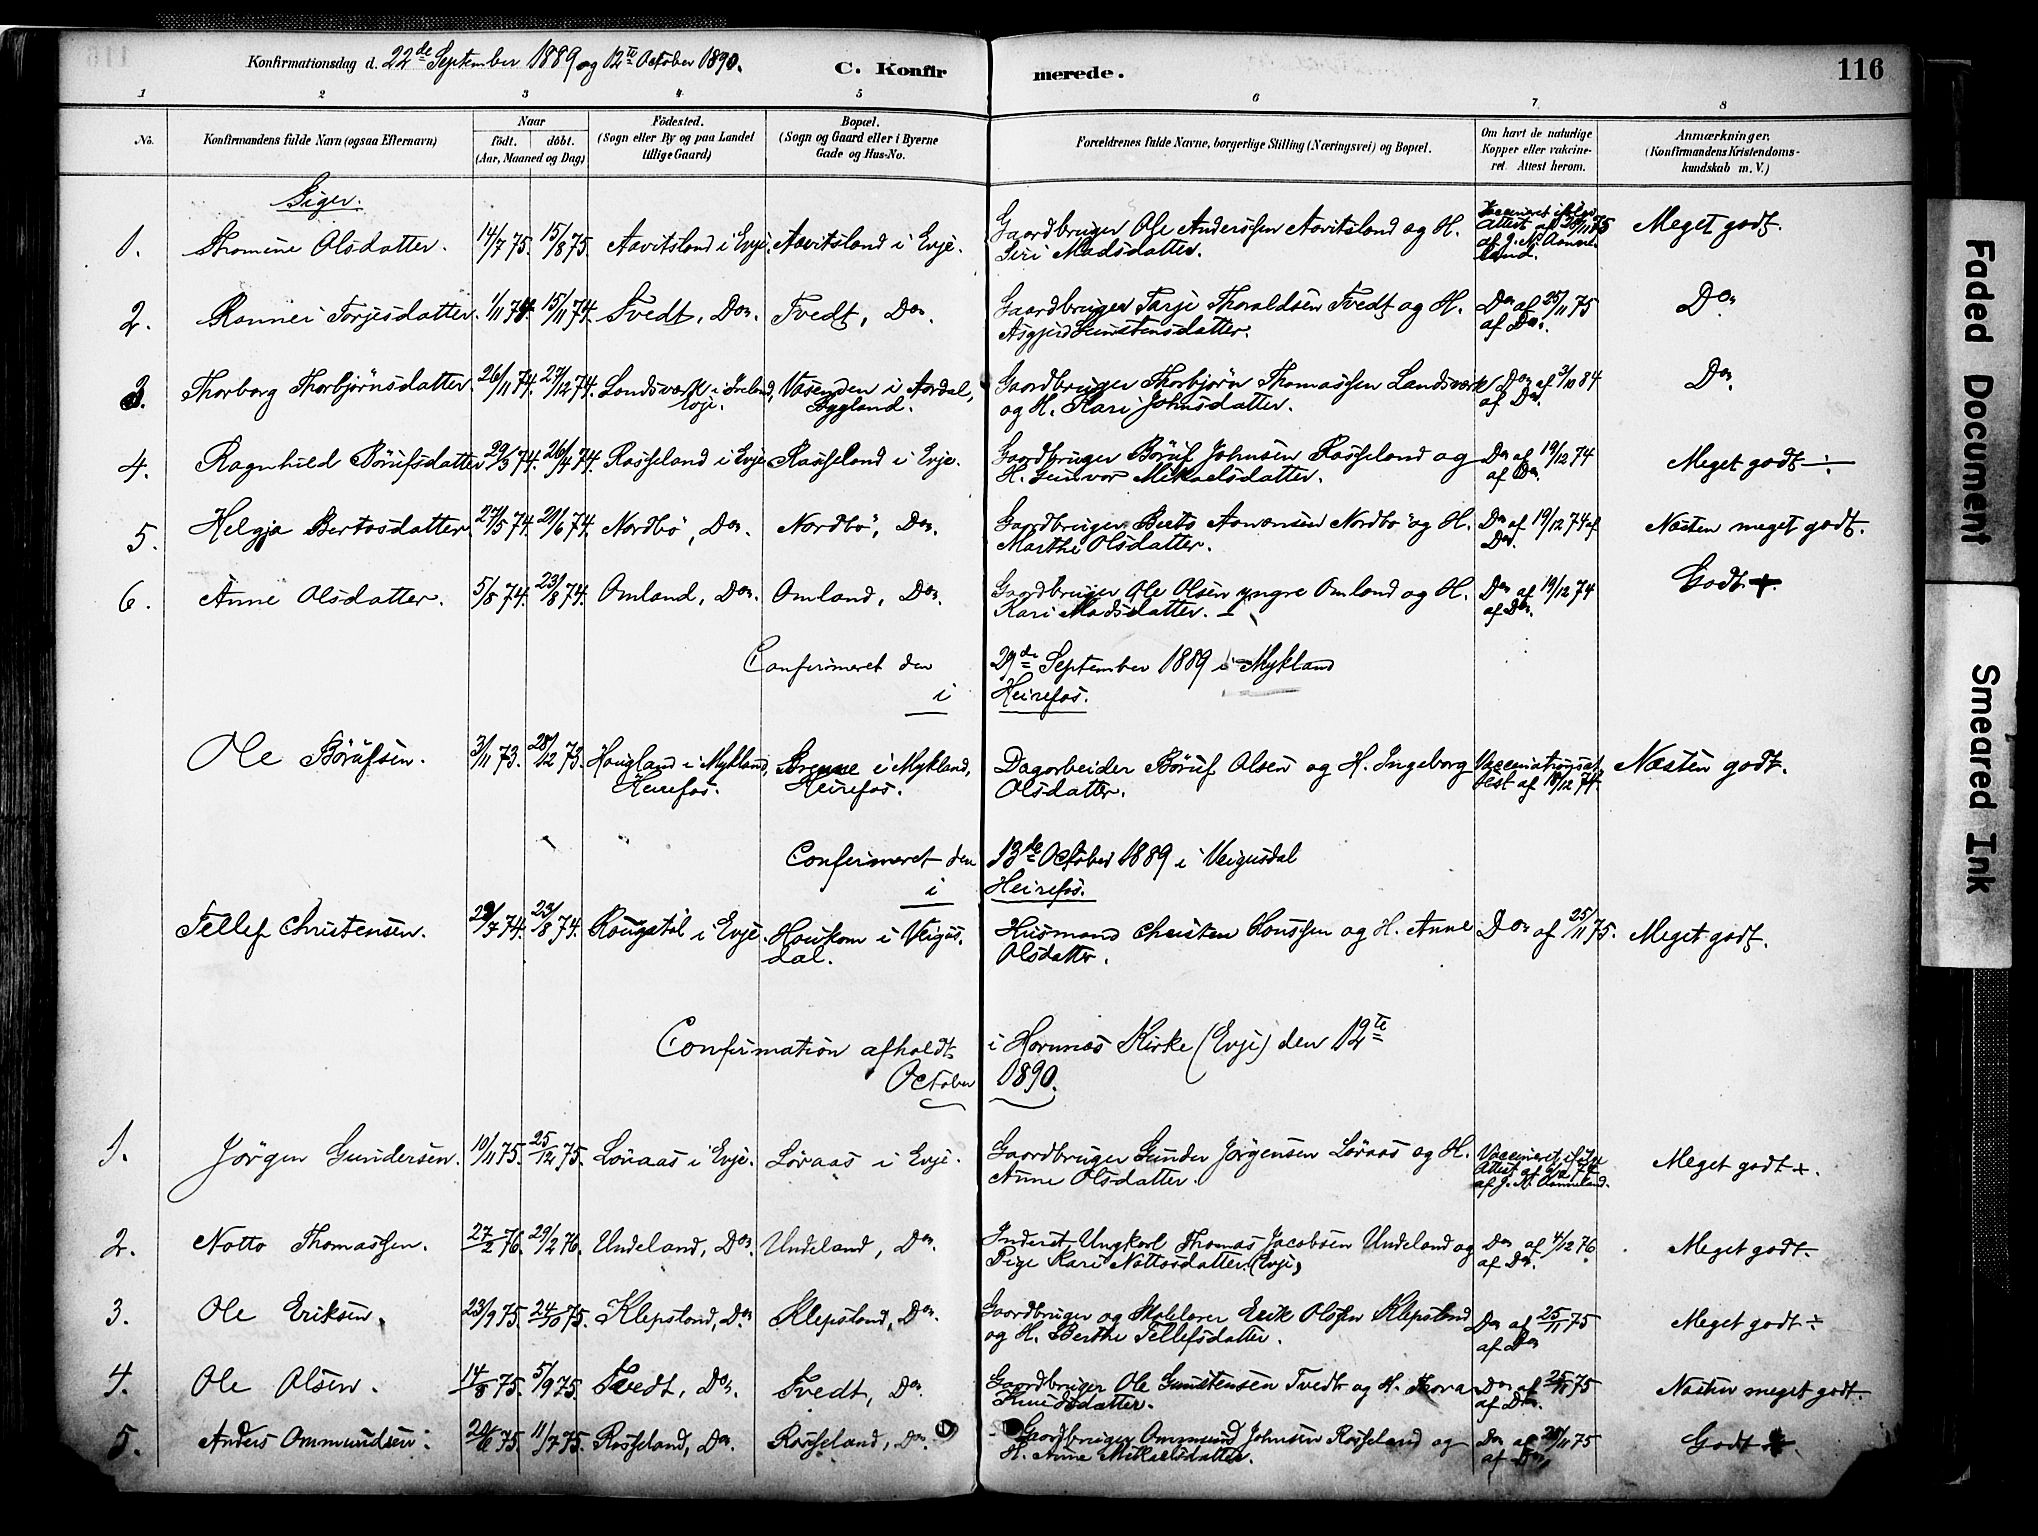 116
Konfirmationsdag d. 22de September 1889 og 12te October 1890.
C. Konfirmerede.
1 2 3 4 5 6 7. 8
No.
Konfirmandens fulde Navn (ogsaa Efternavn)
Naar
födt. döbt.
(Aar, Maaned og Dag)
Födested.
(Sogn eller By og paa Landet
tillige Gaard)
Bopæl.
(Sogn og Gaard eller i Byerne
Gade og Hus-No.
Forældrenes fulde Navne, borgerlige Stilling (Næringsvei) og Bopæl.
Om havt de naturlige
Kopper eller vakcine-
ret. Attest herom.
Anmærkninger.
(Konfirmandens Kristendoms-
kundskab m. V.)
Piger.
1. Thomine Olsdatter. 14/7 75. 15/8 75. Aavitsland i Evje. Aavitsland i Evje. Gaardbruger Ole Anderssen Aavitsland og H.
Siri Madsdatter.
Vaccineret ifölge
Attest af 25/11 75
af J. N. Aanne-
land.
Meget godt.
2. Rannei Torjesdatter. 1/11 74. 15/11 74. Tvedt, Do. Tvedt, Do. Gaardbruger Tarje Thoraldsen Tvedt og H.
Asgjerd Gunstensdatter.
Do af 25/11 75
af Do.
Do
3. Thorborg Thorbjörnsdatter. 26/11 74. 27/12 74. Landsværk i Ireland, Evje. Vasenden i Aardal, Bygland. Gaardbruger Thorbjörn Thomassen Landsværk
og H. Kari Johnsdatter.
Do af 3/10 84
af Do.
Do.
4. Ragnhild Börufsdatter 29/3 74. 26/4 74. Rosseland i Evje Rosseland i Evje. Gaardbruger Böruf Johnsen Rosseland og
H. Gunvor Mikaelsdatter.
Do af 19/12 74
af Do.
Meget godt ÷
5. Helgja Bertosdatter. 27/5 74. 21/6 74. Nordbö, Do. Nordbö, Do. Gaardbruger Berto Aanonsen Nordbö og H.
Marthe Olsdatter.
Do af 19/12 74 af
Do.
Næsten meget godt.
6. Anne Olsdatter. 5/8 74. 23/8 74. Omland, Do. Omland, Do. Gaardbruger Ole Olsen yngre Omland og H.
Kari Madsdatter.
Do af 19/12 74
af Do.
Godt +.
Confirmeret den 29de September 1889 i Mykland
i Heirefos.
Ole Börufsen. 3/11 73. 28/12 73. Haugland i Mykland, Heirefos. Brenne i Mykland, Heirefos. Dagarbeider Böruf Olsen og H. Ingeborg
Olsdatter.
Vaccinationsat-
test af 18/12 74.
Næsten godt.
Confirmeret den 13de October 1889 i Veigusdal
i Heirefos.
Tellef Christensen. 29/7 74. 23/8 74. Raugstöl i Evje. Haukom i Veigus-
dal. Husmand Christen Hanssen og H. Anne
Olsdatter.
Do af 25/11 75.
Meget godt.
Confirmation afholdt i Hornnes Kirke (Evje) den 12te
October 1890.
1. Jörgen Gundersen. 10/11 75. 25/12 75. Lövaas i Evje. Lövaas i Evje. Gaardbruger Gunder Jörgensen Lövaas og H.
Anne Olsdatter.
Vaccineret ifölge
Attest af
af J. N. Aanneland.
Meget godt +.
2. Notto Thomassen. 27/2 76. 29/2 76. Uudeland, Do. Uudeland, Do. Inderst Ungkarl Thomas Jacobsen Uudeland og
Pige Kari Nottosdatter. (Evje)
Do af 4/12 76
af Do.
Meget godt.
3. Ole Eriksen. 23/9 75. 24/10 75. Klepsland, Do Klepsland, Do. Gaardbruger og Skolelærer Erik Olssen Klepsland
og H. Berthe Tellefsdatter.
Do af 25/11 75
af Do
Meget godt ÷
4. Ole Olsen. 14/8 75. 5/9 75. Tvedt, Do. Tvedt, Do. Gaardbruger Ole Gunstensen Tvedt og H. Thora
Knudsdatter.
Do af 25/11 75
af Do.
Næsten meget godt.
5. Anders Ommundsen. 20/6 75. 11/7 75. Rosseland, Do. Rosseland, Do. Gaardbruger Ommund Johnsen Rosseland og
H. Anne Mikaelsdatter.
Do af 25/11 75
af Do
Godt
Faded Document
Smeared Ink